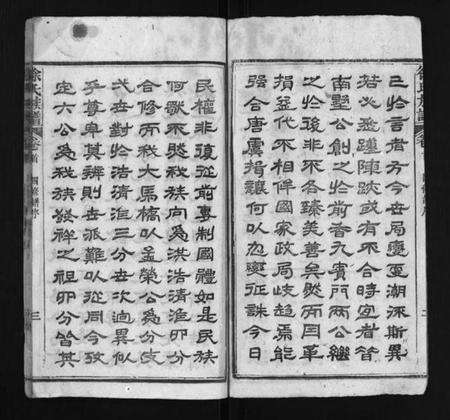 三於言者方今世局變更潮流斯異
若必盡踵陳跡或有不合時宜者昔
南墅公創之於前香九賓門兩公繼
之於後非不各臻美善矣然而因革
損益代不相侔國家政局岐趨焉能
強合唐虞揖讓何以忽變征誅今日
徐氏族譜 卷首
三
民權非復從前專制國體如是民族
何獨不然我族向為洪浩清淮四分
合修而我大馬橋以孟榮公為分支
弌世對於浩清淮三分世次迥異似
乎尊卑莫辨則世派難以從同今攷
定六公為我族發祥之祖四分皆其